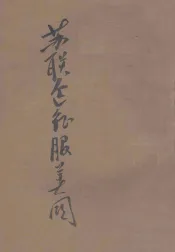 苏联征服美国